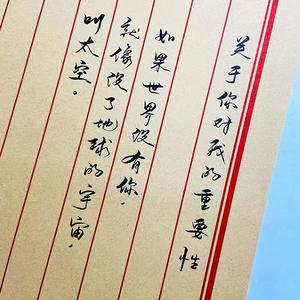 关于你对我的重要性
如果世界没有你，
就像没了地球的宇宙，
叫太空。